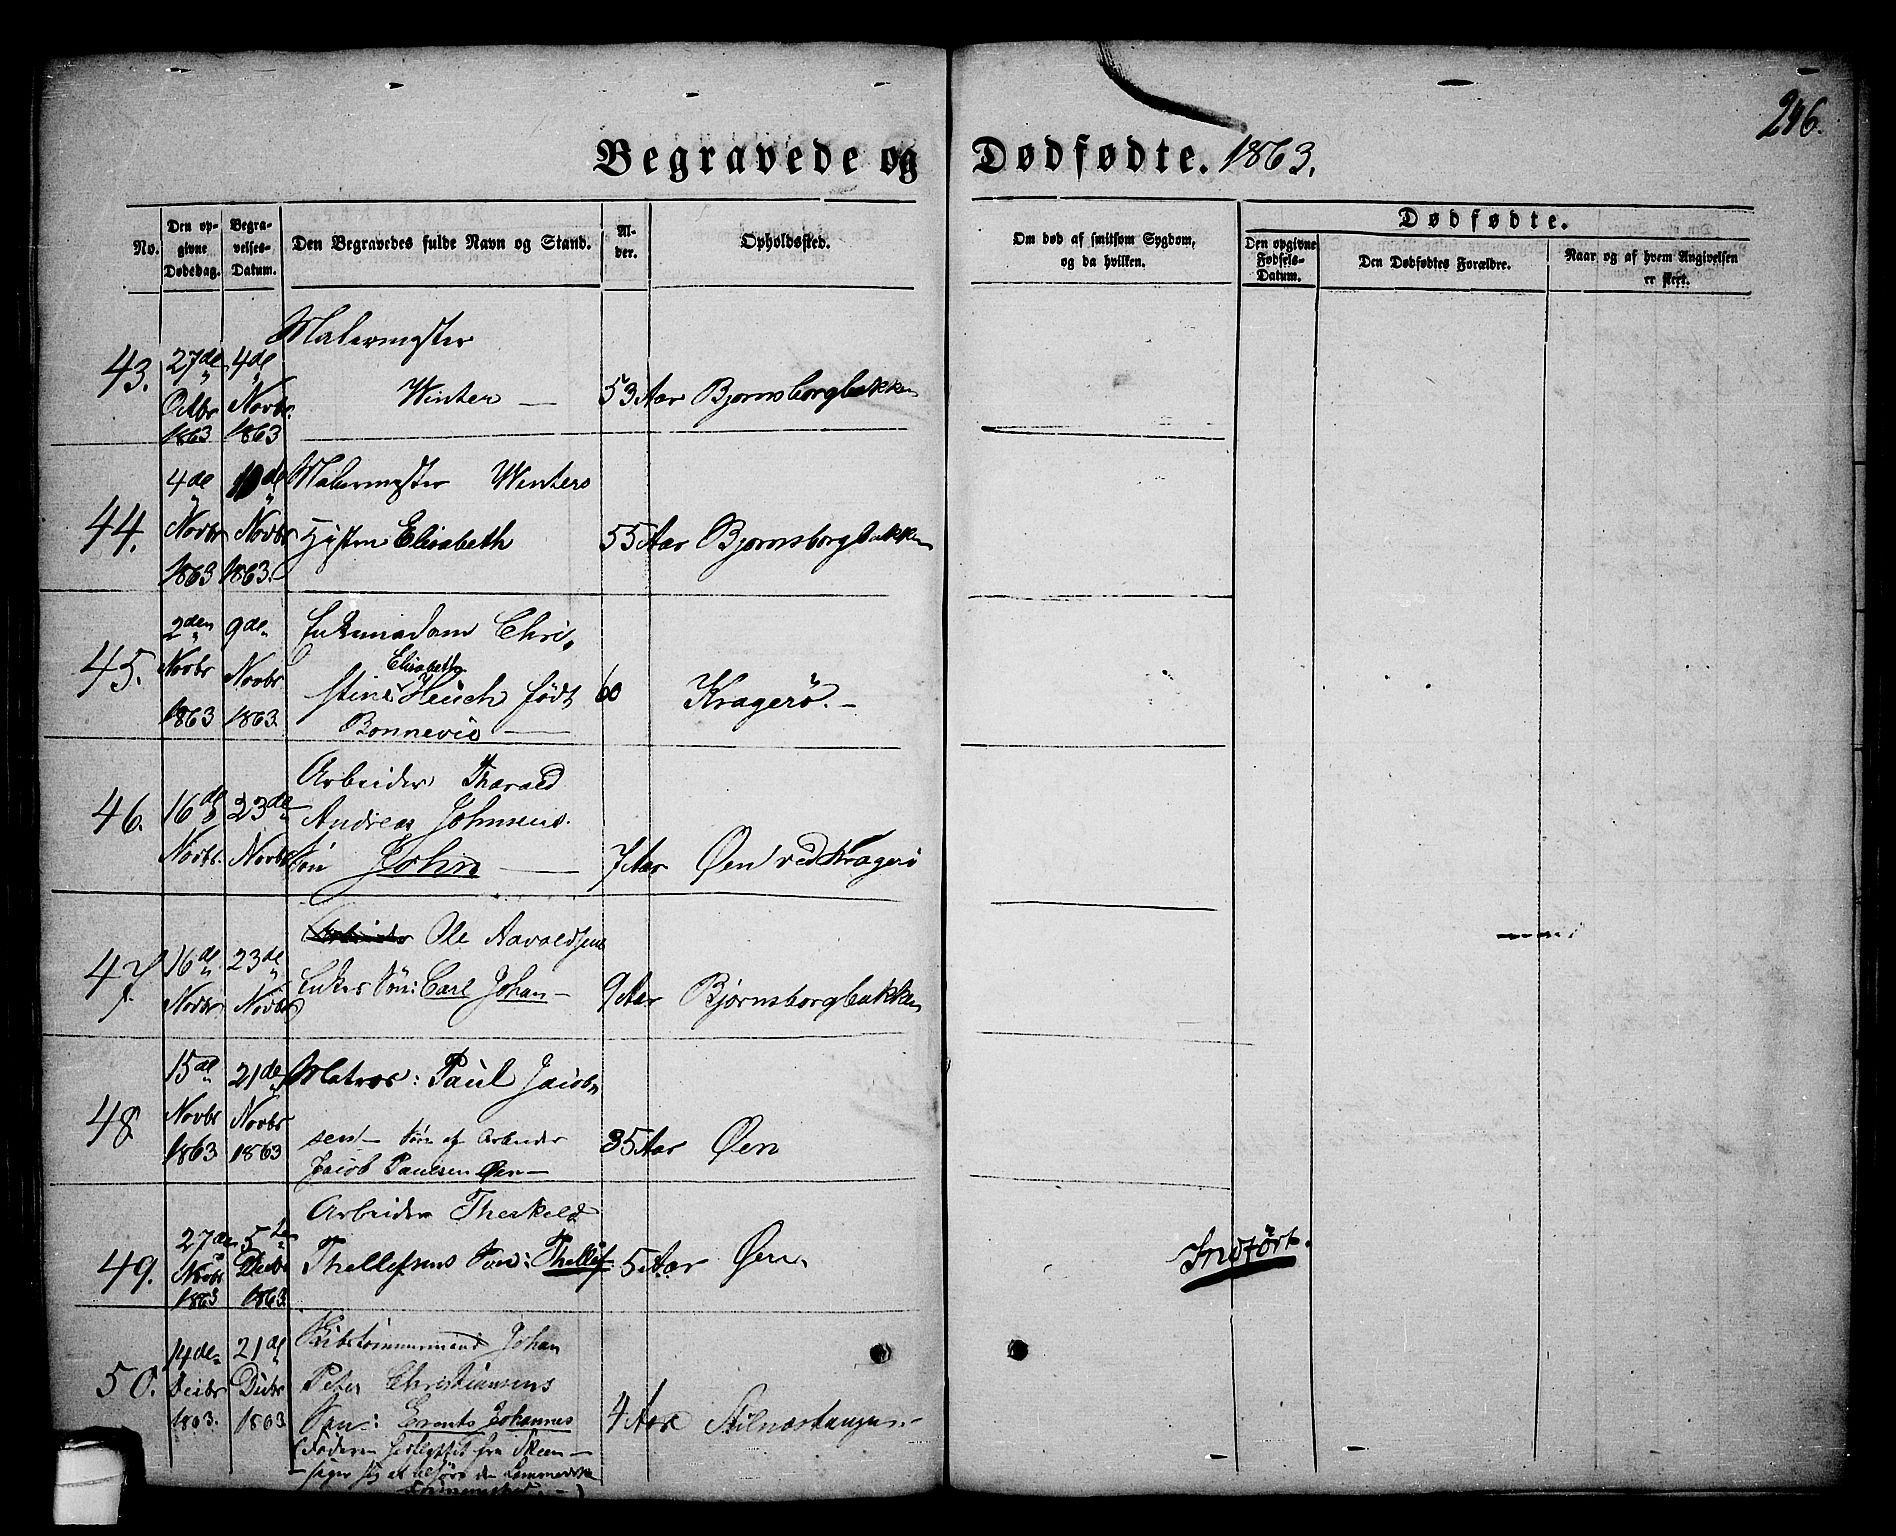 296.
Begravede og Dødfødte. 1863.
No.
Den opgivne Dødsdag.
Begravelses-Datum.
Den Begravedes fulde Navn og Stand.
Alder.
Opholdssted.
Om død af smitsom Sygdom, og da hvilken.
Dødfødte.
Den opgivne Fødsels-Datum.
Den Dødfødtes Forældre.
Naar og af hvem Angivelsen er skeet.
43. 27de Octbr 1863 4de Novbr 1863
Malermester
Winter — 53 Aar Bjornsborgbakken
44. 4de Novbr 1863 10de Novbr 1863
Malermester Winters
Hustru Elisabeth 55 Aar Bjornsborgbakken
45. 2den Novbr 1863 9de Novbr 1863.
Enkemadam Chri-
Elisabeth
stine Heuch født 60 Kragerø. —
Bonnevie —
46. 16de Novbr. 23de Novbr
Arbeider Tharald
Andreas Johnsens
Søn John — 7 Aar Øen ved Kragerø
47. 16de Novbr 23de Novbr
Arbeider Ole Aavoldsens
Enkes Søn: Carl Johan — 9 Aar Bjørnsborgbakken
48 15de Novbr 1863 21de Novbr 1863
Matros: Paul Jacob-
sen — Søn af Arbeider 35 Aar Øen
Jacob Paulsen Øen —
49. 27de Novbr 1863 5te Decbr 1863
Arbeider Therkeld
Thellefsens Søn: Thellef 5 Aar Øen
Indført.
50. 14de Decbr 1863. 21de Decbr 1863
Johan
Peter Christiansens
Søn: Johannes 4 Aar Stilnæstangen —
(Faderen fra Skeen —